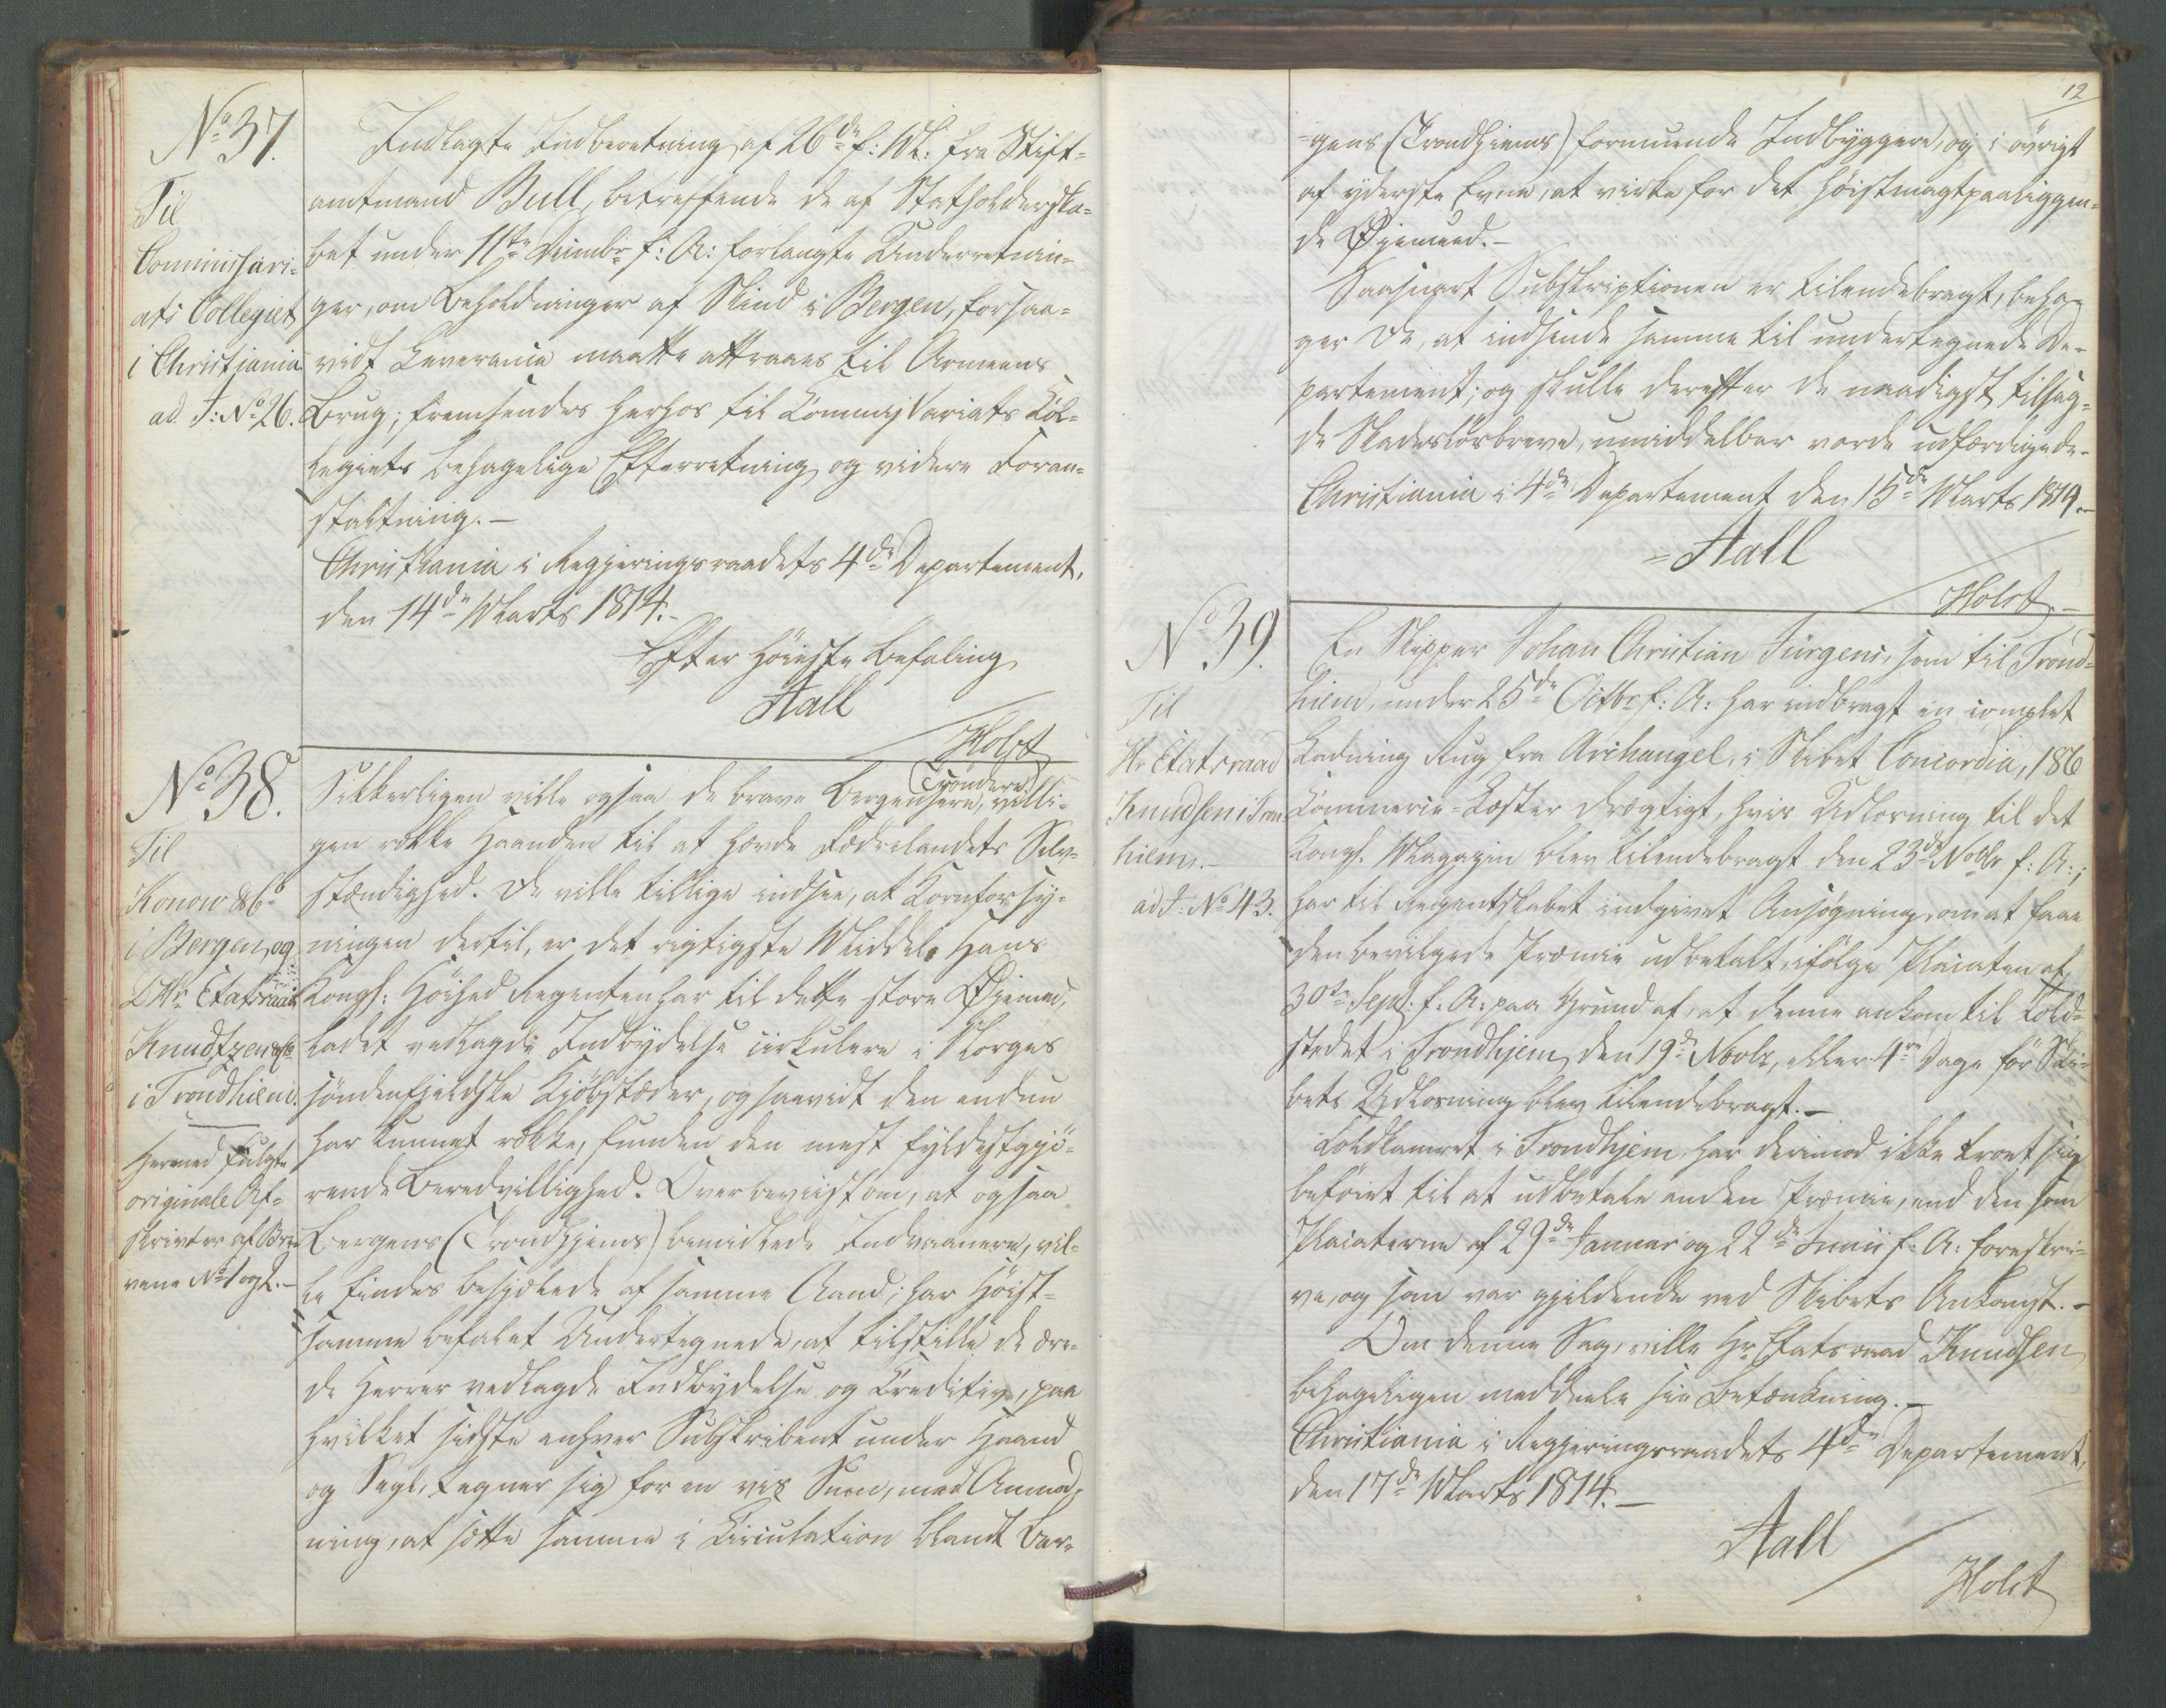 No 37.
Til
Commissari-
ats Collegiet
i Christiania
ad J: No 26.
Indlagte Indberetning af 26de f: M: fra Stift-
amtmand Bull, betreffende de af Statholderska-
bet under 11te Decembr f: A: forlangte Underretnin-
ger, om Beholdninger af Skind i Bergen, forsaa-
vidt Leverance maatte attraaes til Armeens
Brug; fremsendes herhos til Commissariats Col-
legiets behagelige Efterretning og videre Foran-
staltning. –
Christiania i Regjeringsraadets 4de Departement,
den 14de Marts 1814. –
Efter Höieste Befaling
Aall
Holst
No 38.
Til
Konow & Co
i Bergen, og
Hr Etatsraad
Knudtzen & Co
i Trondhiem.
Hermed fulgte
originale Af-
skrivter af Bre-
vene No 1 og 2. –
Sikkerligen ville ogsaa de brave Bergensere, (Tröndere) villi-
gen række Haanden til at hævde Fædrelandets Selv-
stændighed. De ville tillige indsee, at Kornforsy-
ningen dertil, er det rigtigste Middel. Hans
Kongl: Höihed Regenten har til dette store Öjemed,
ladet vedlagde Indbydelse cirkulere i Norges
söndenfjeldske Kjöbstæder, og saavidt den endnu
har kunnet række, funden den mest fyldestgjö-
rende Beredvillighed. Overbeviist om, at ogsaa
Bergens (Trondhjems) bemidlede Indvaanere, vil-
le findes besjælede af samme Aand; har Höist-
samme befalet Undertegnede, at tilstille de ære-
de Herrer vedlagde Indbydelse og Creditiv, paa
hvilket sidste enhver Subskribent under Haand
og Segl, tegner sig for en vis Sum, med Anmod-
ning, at sætte samme i Circulation blandt Ber-
12
-gens (Trondhjems) formuende Indbyggere, og i övrigt
af yderste Evne, at virke for det höistmagtpaaliggen-
de Öjemeed. –
Saasnart Subskriptionen er tilendebragt, beha-
ger De, at indsende samme til undertegnede De-
partement; og skulle derefter de naadigst tilsag-
de Skadeslösbreve, umiddelbar vorde udfærdigede.
Christiania i 4de Departement den 15de Marts 1814. –
Aall
Holst. –
No 39.
Til
Hr Etatsraad
Knudsen i Tron-
hiem. –
ad J: No 43.
En Skipper Johan Christian Jürgens, som til Trond-
hiem, under 25de Octbr f: A: har indbragt en complet
Ladning Rug fra Archangel, i Skibet Concordia, 186
Commerce-Læster drægtigt, hvis Udlosning til det
Kongl. Magazin blev tilendebragt den 23de Novbr f: A:;
har til Regentskabet indgivet Ansögning, om at faae
den bevilgede Præmie udbetalt, ifölge Placaten af
30te Sept: f: A: paa Grund af, at denne ankom til Told-
stedet i Trondhjem, den 19de Novbr, eller 4re Dage för Ski-
bets Udlosning blev tilendebragt. –
Toldkamret i Trondhjem, har derimod ikke troet sig
beföiet til at udbetale anden Præmie, end den som
Placaterne af 29de Januar og 22de Junii f: A: foreskri-
ve, og som var gjeldende ved Skibets Ankomst. –
Om denne Sag, ville Hr Etatsraad Knudsen
behageligen meddeele sin Betænkning. –
Christiania i Regjeringsraadets 4de Departement,
den 17de Marts 1814. –
Aall
Holst